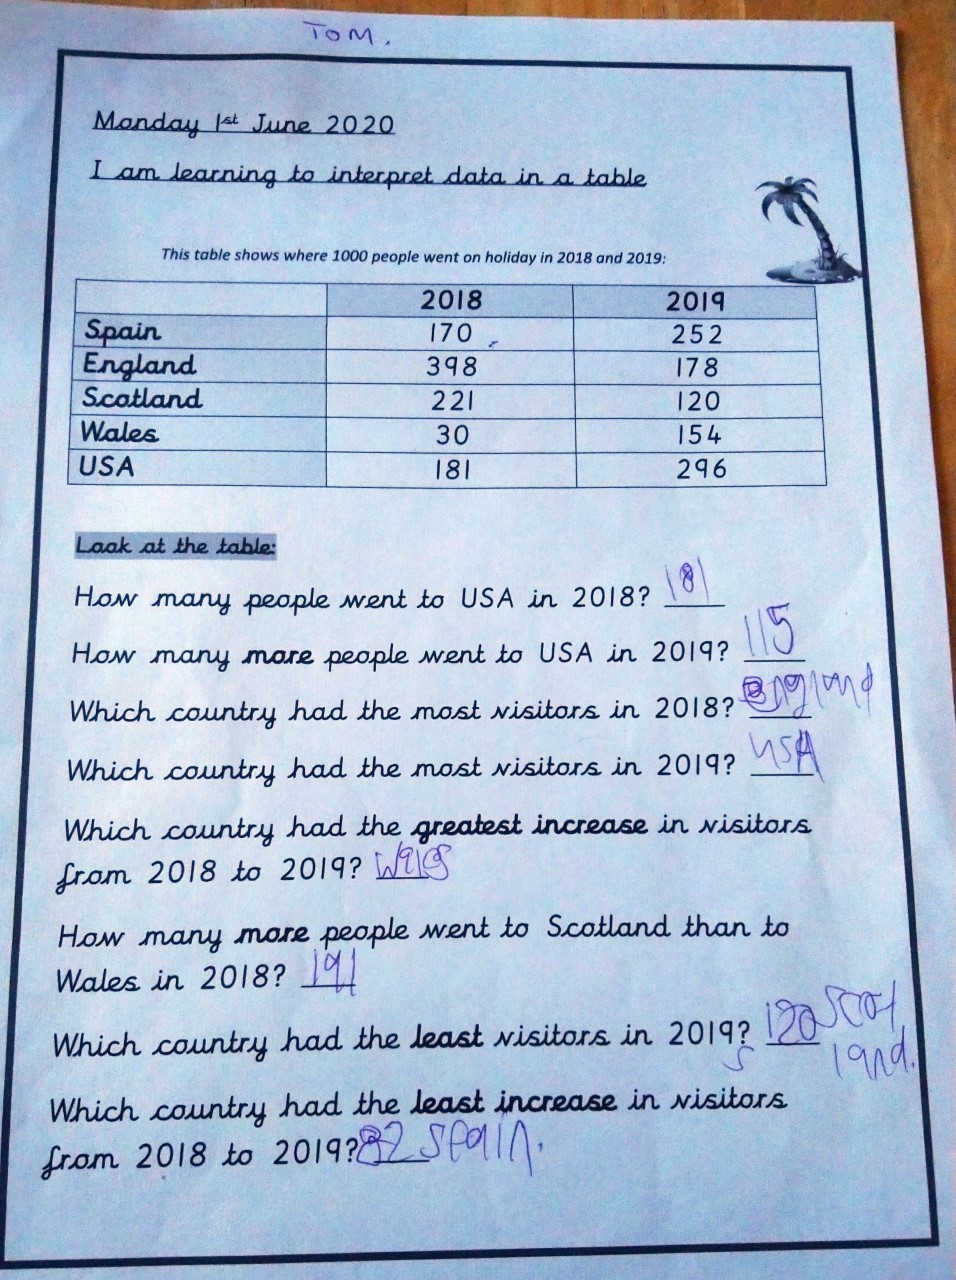 TOM.
Monday 1st June 2020
I am learning to interpret data in a table
This table shows where 1000 people went on holiday in 2018 and 2019:
2018 2019
Spain 170 252
England 398 178
Scotland 221 120
Wales 30 154
USA 181 296
Look at the table:
How many people went to USA in 2018? 181
How many more people went to USA in 2019? 115
Which country had the most visitors in 2018? England
Which country had the most visitors in 2019? USA
Which country had the greatest increase in visitors
from 2018 to 2019? Wales
How many more people went to Scotland than to
Wales in 2018? 191
Which country had the least visitors in 2019? 120 Scot
land.
Which country had the least increase in visitors
from 2018 to 2019? 82 Spain.